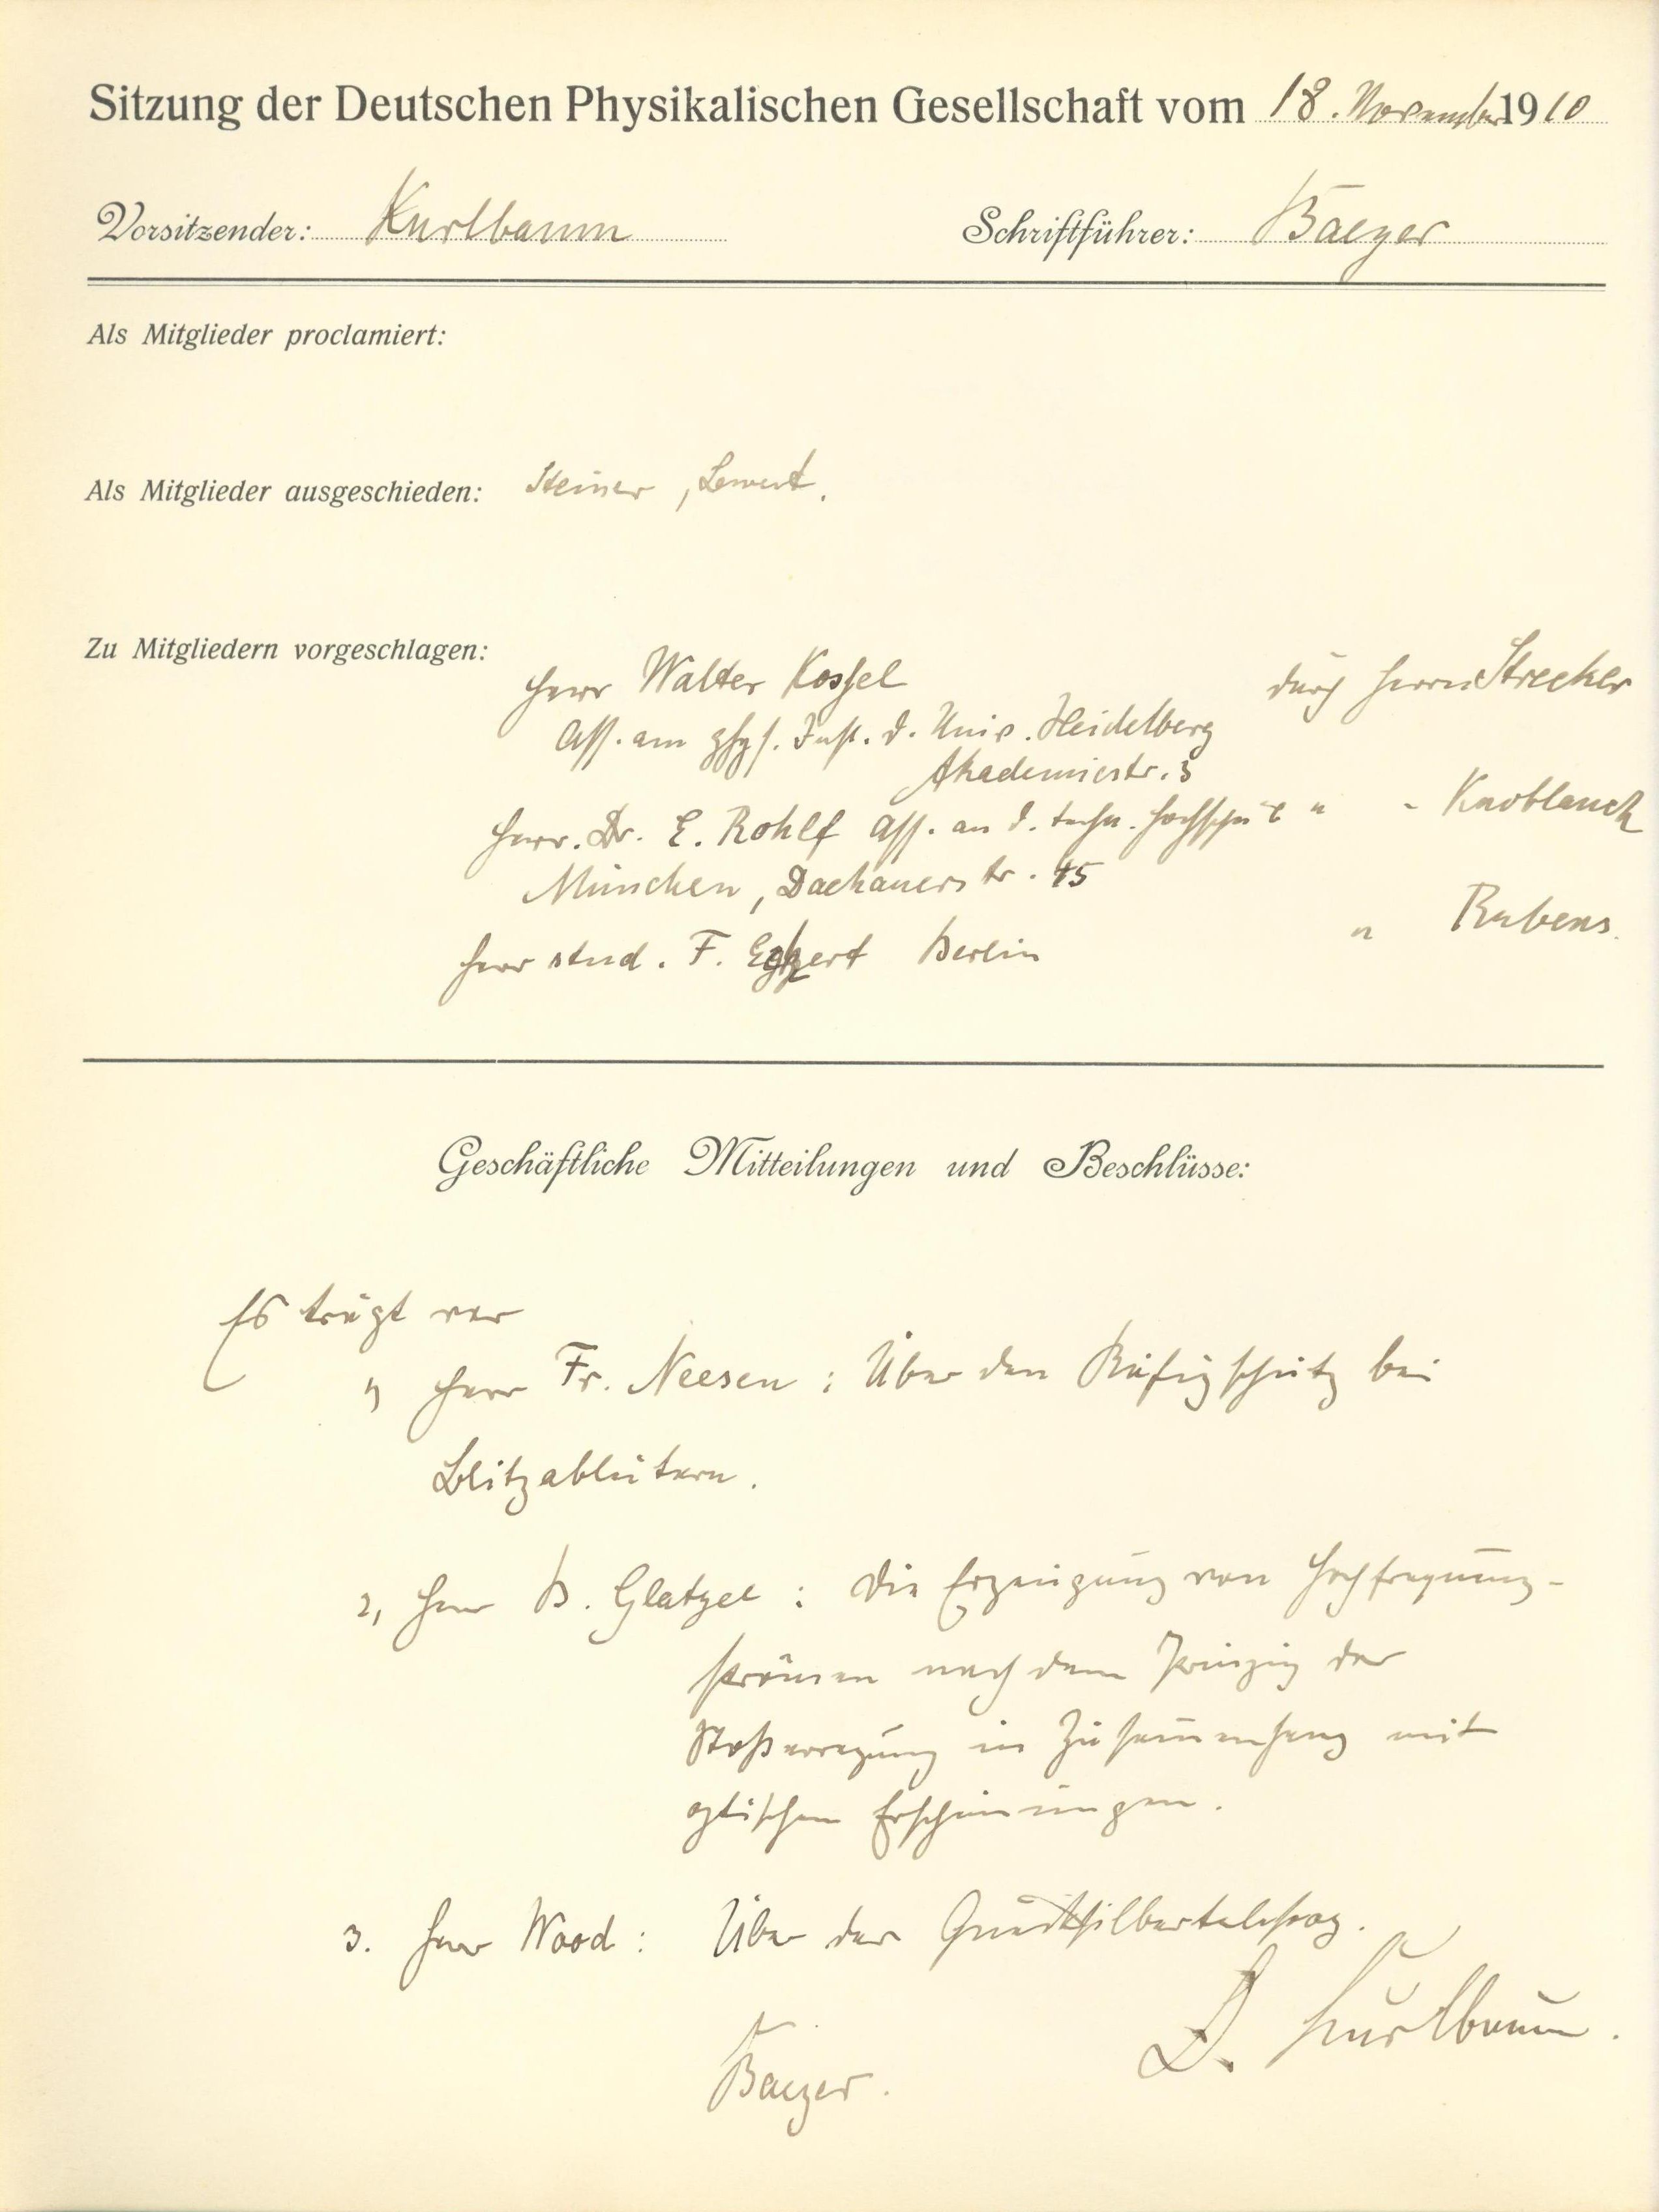 Sitzung der Deutschen Physikalischen Gesellschaft vom 18. November 1910
Vorsitzender: Kurlbaum Schriftführer: Baeyer
Als Mitglieder proclamiert:
Als Mitglieder ausgeschieden: Steiner,
Zu Mitgliedern vorgeschlagen:
Herr Walter Kossel durch Herrn Strecker
Ass. am phys. Inst. d. Univ. Heidelberg
Akademiestr. 3
Herr. Dr. E. Rohlf Ass. an d. techn. Hochschule " " Knoblauch
München, Dachauerstr. 45
Herr stud. F. Berlin " Rubens.
Geschäftliche Mitteilungen und Beschlüsse:
Es trägt vor
1) Herr Fr. Neesen: Über den Käfigschutz bei
Blitzableitern.
2, Herr B. Glatzel: Die Erzeugung von Hochfrequenz-
strömen nach dem Prinzip der
Stoßerregung in Zusammenhang mit
optischen Erscheinungen.
3. Herr Wood: Über das Quecksilberteleskop.
Baeyer. F. Kurlbaum.